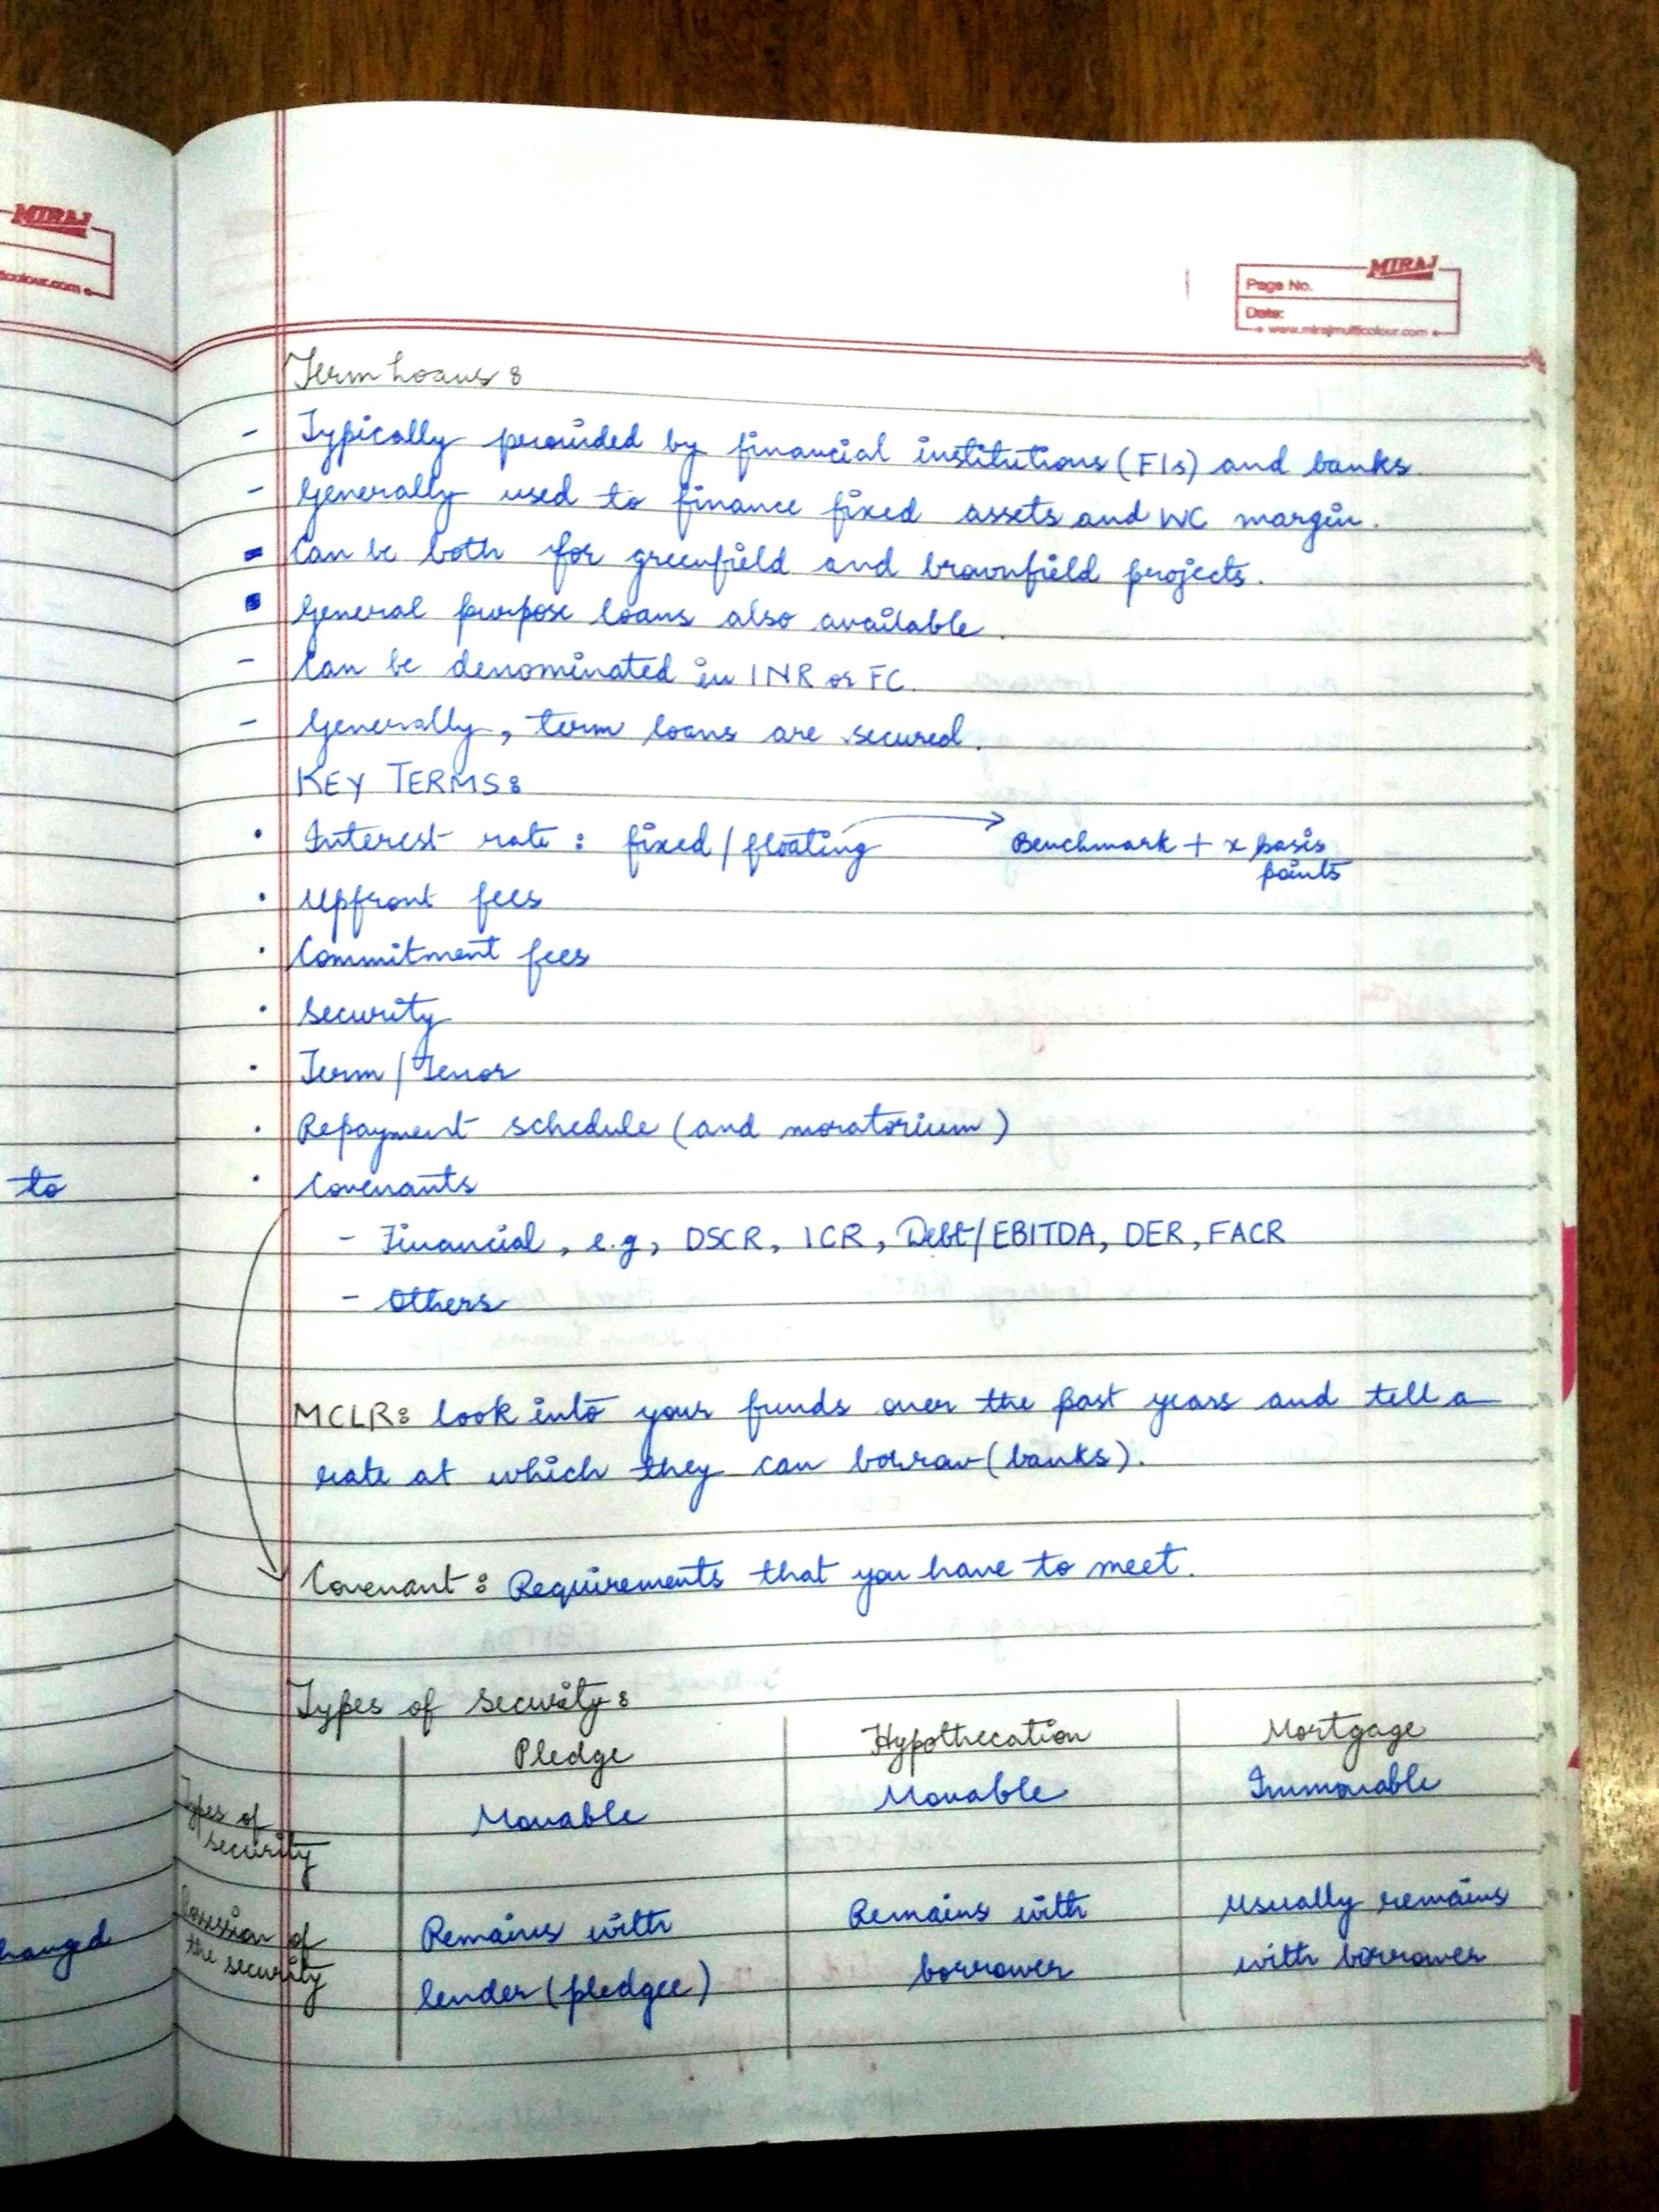 MIRAJ
MIRAJ
Page No.
Date:
www.mirajmulticolour.com
Term Loans:
- Typically provided by financial institutions (FIs) and banks.
- Generally used to finance fixed assets and WC margin.
- Can be both for greenfield and brownfield projects.
- General purpose loans also available.
- Can be denominated in INR or FC.
- Generally, term loans are secured.
KEY TERMS:
• Interest rate: fixed/floating → Benchmark + x basis
points
• Upfront fees
• Commitment fees
• Security
• Term/Tenor
• Repayment schedule (and moratorium)
to
• Covenants
- Financial, e.g, DSCR, ICR, Debt/EBITDA, DER, FACR
- Others
MCLR: look into your funds over the past years and tell a
rate at which they can borrow (banks).
Covenant: Requirements that you have to meet.
Types of security:
Pledge Hypothecation Mortgage
Types of Movable Movable Immovable
security
of Remains with Remains with Usually remains
the security lender (pledgee) borrower with borrower